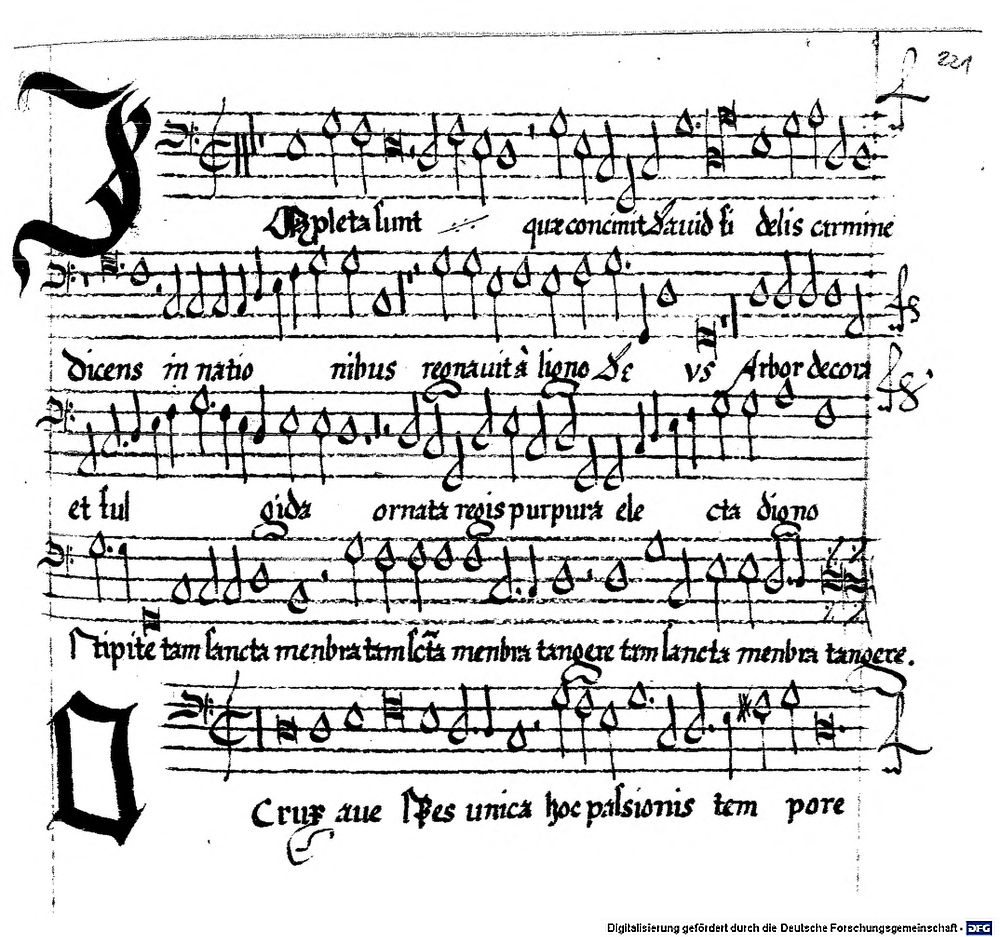 221
Impleta sunt quæ concinit dauid fi delis carmine
dicens in natio nibus regnauit à ligno De vs Arbor decora
et ful gida ornata regis purpura ele cta digno
Stipite tam sancta menbra tam sctã menbra tangere tam sancta menbra tangere.
O Crux aue spes unica hoc passionis tem pore
Digitalisierung gefördert durch die Deutsche Forschungsgemeinschaft - DFG